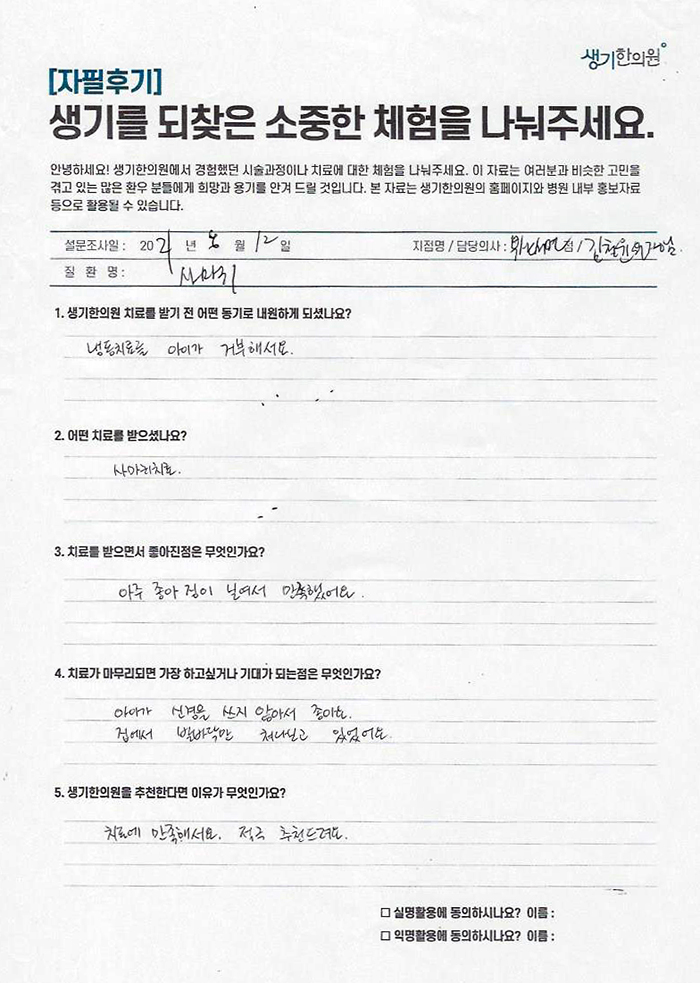 생기한의원
[자필후기]
생기를 되찾은 소중한 체험을 나눠주세요.
안녕하세요! 생기한의원에서 경험했던 시술과정이나 치료에 대한 체험을 나눠주세요. 이 자료는 여러분과 비슷한 고민을
겪고 있는 많은 환우 분들에게 희망과 용기를 안겨 드릴 것입니다. 본 자료는 생기한의원의 홈페이지와 병원 내부 홍보자료
등으로 활용될 수 있습니다.
설문조사일 : 2021 년 월 12 일 지점명 / 담당의사 : 점 /
질 환 명 : 사마귀
1. 생기한의원 치료를 받기 전 어떤 동기로 내원하게 되셨나요?
냉동치료를 아이가 거부해서요.
2. 어떤 치료를 받으셨나요?
사마귀치료.
3. 치료를 받으면서 좋아진점은 무엇인가요?
아주 좋아 짐이 만족했어요.
4. 치료가 마무리되면 가장 하고싶거나 기대가 되는점은 무엇인가요?
아이가 신경을 쓰지 않아서 좋아요.
집에서 발바닥만 쳐다보고 있었어요.
5. 생기한의원을 추천한다면 이유가 무엇인가요?
치료에 만족해서요. 적극 추천드려요.
□ 실명활용에 동의하시나요? 이름 :
□ 익명활용에 동의하시나요? 이름 :